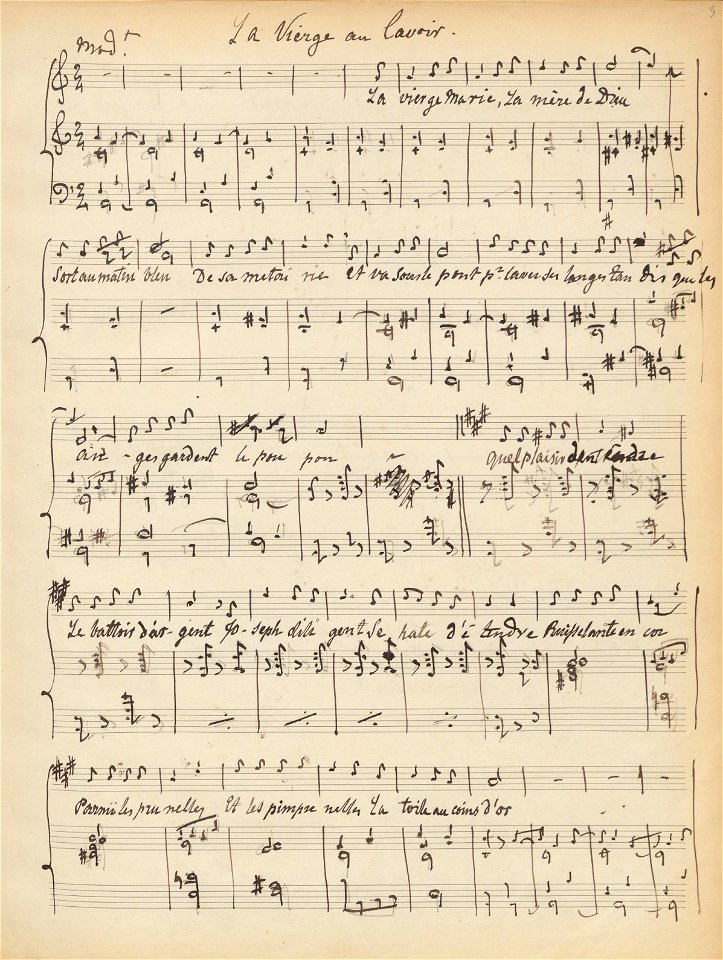 3
La Vierge au lavoir.
Mod.t
La vierge Marie, La mère de Dieu
Sort au matin bleu De sa métai rie Et va sous le pont pr laver ses langes tan dis que les
an - ges gardent le pou pon quel plaisir d'entendre
Le battoir d'ar- gent Jo- seph dili gent Se hate d'é tendre Ruisselante en cor
Parmi les pru nelles Et les pimpre nelles La toile au coins d'or